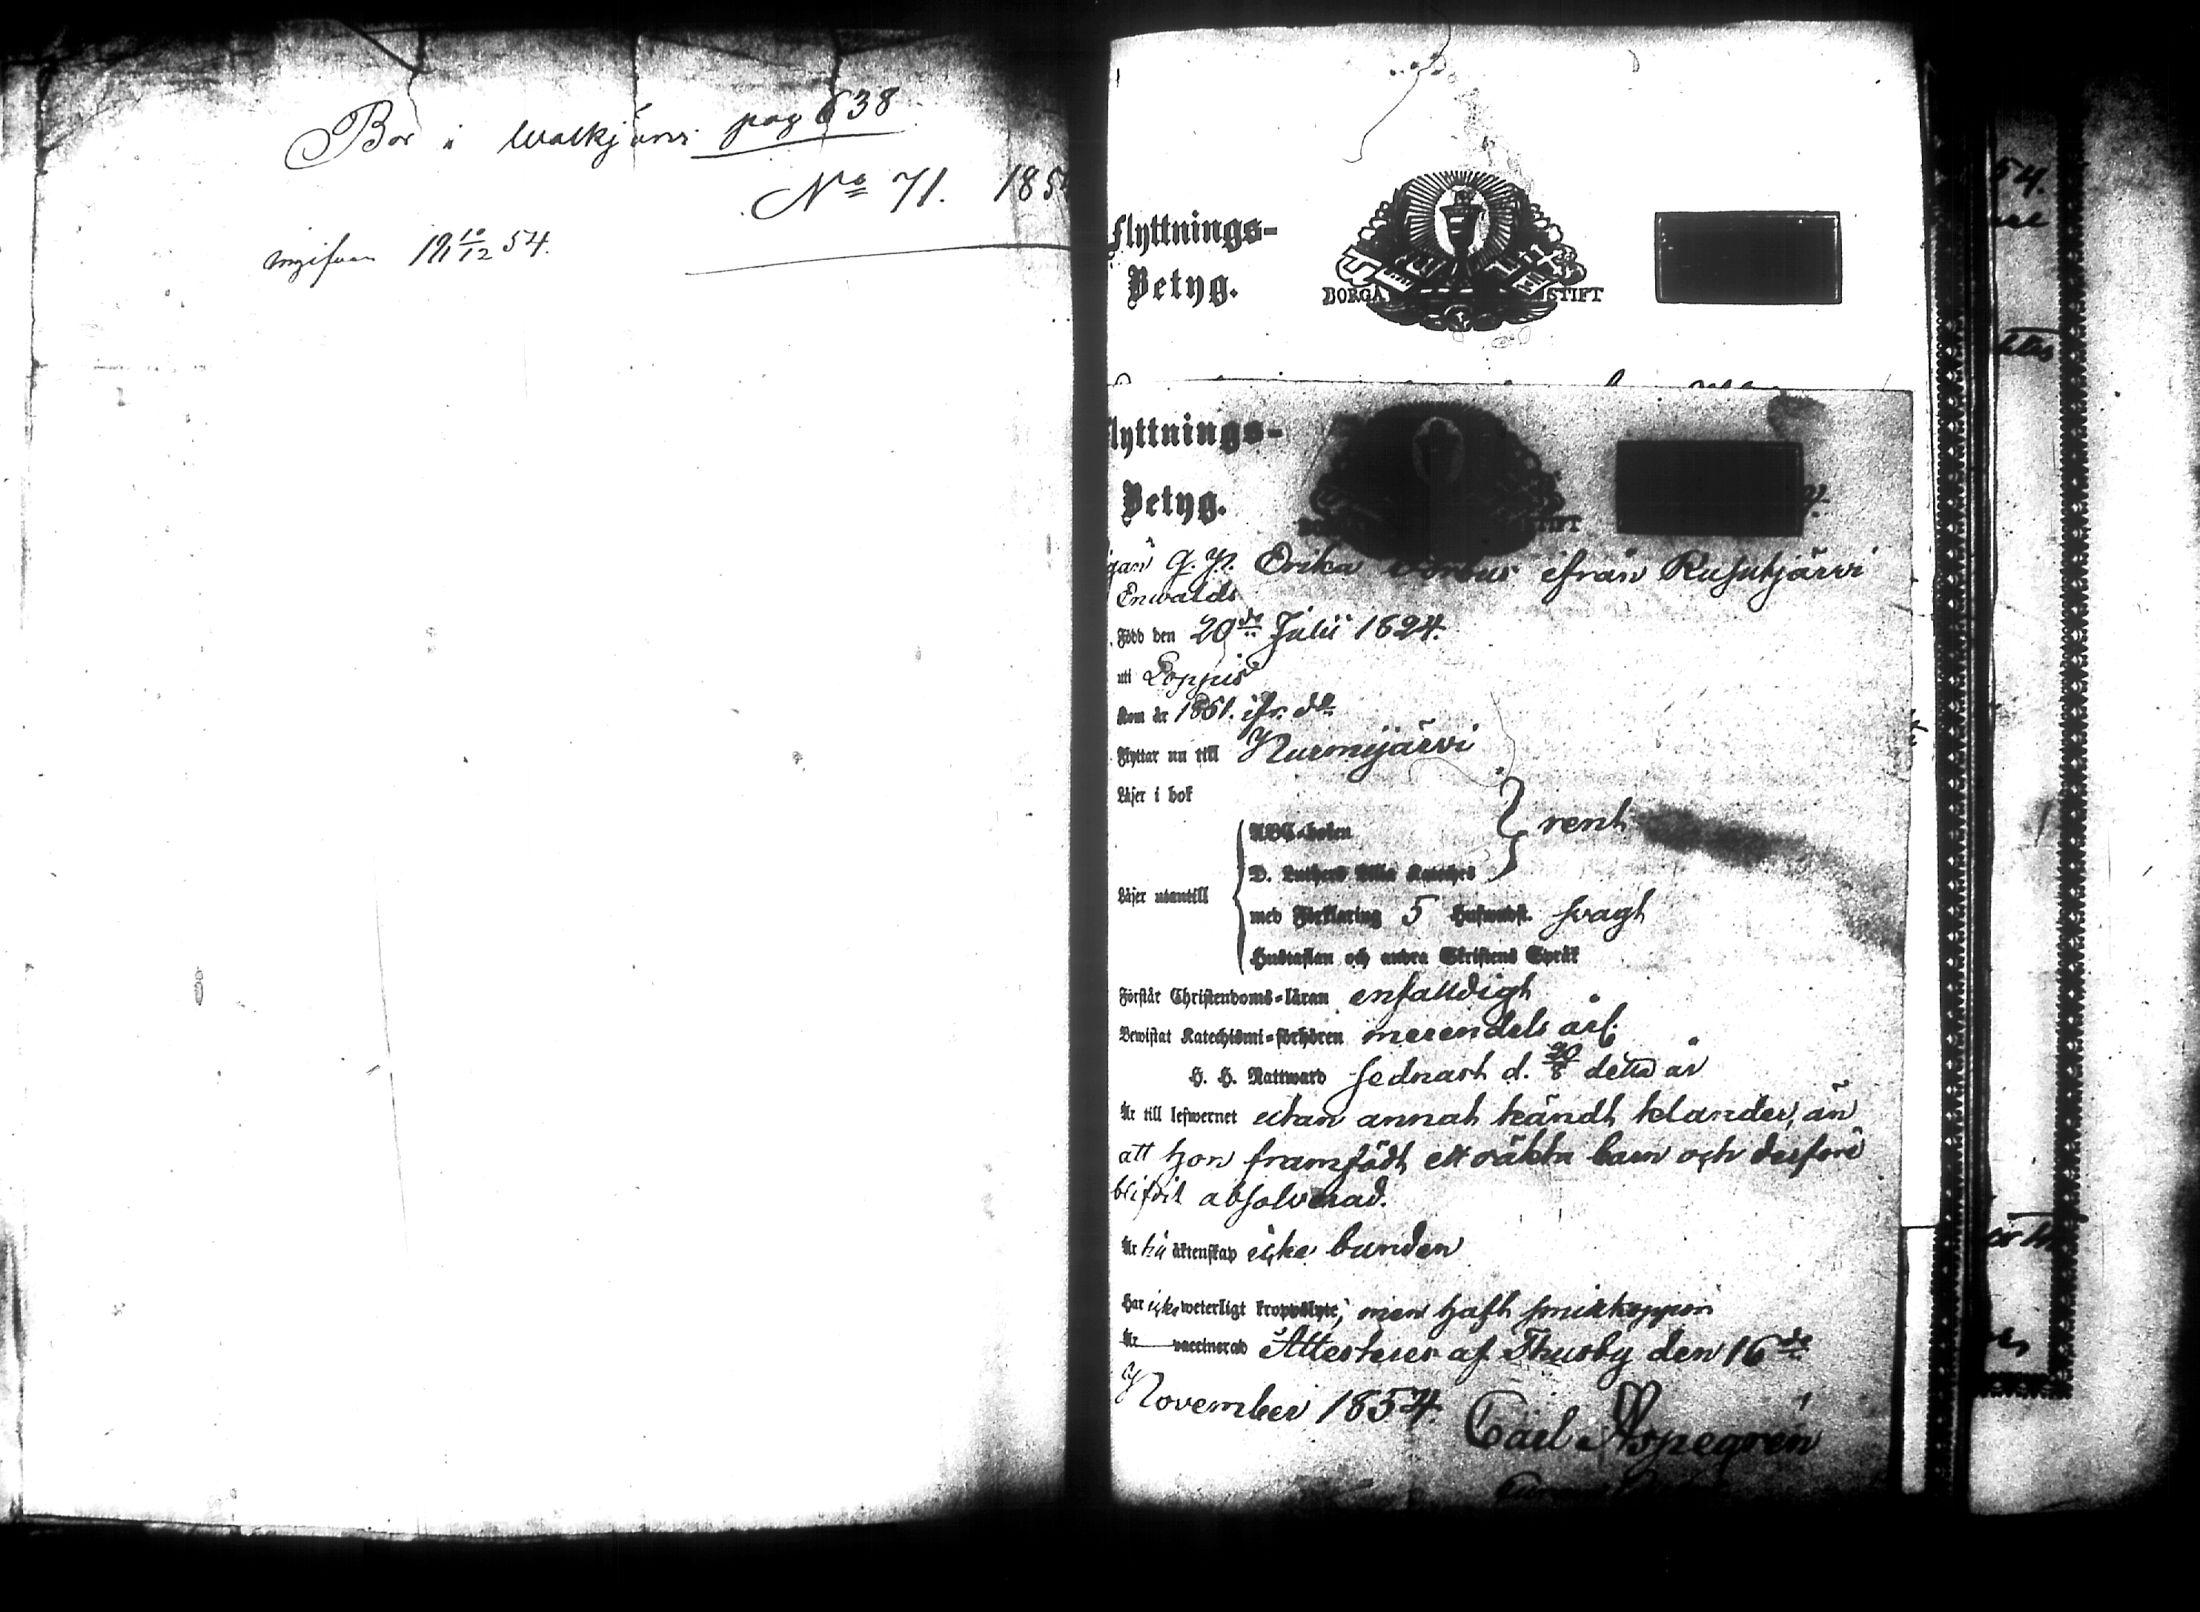 Bor i Walkjärvi pag 638
No 71. 185
ingifven 18 10/12 54.
Flyttnings-
Betyg.
BORGÅ STIFT
lyttnings-
Betyg.
STIFT
Erika ifrån Rusutjärvi
Enwalds
Född den 20de Julii 1824.
uti Loppis
Kom år 1851. ifr. do
Flyttar nu till Nurmijärvi
Läser i bok
ABC-boken
rent
D. Luthers Lilla Kateches
Läser utantill
med Förklaring 5 Hufwudst. svagt
Hustaflan och andra Skriftens Språk
Förstår Christendoms-läran enfaldigt
Bewistat Katechismi-förhören merendels årl.
H. H. Nattward sednast d. 20/8 detta år
Är till lefwernet utan annat kändt klander, än
att hon framfödt ett oäkta barn och derföre
blifvit absolverad.
Är till äktenskap icke bunden
Har icke weterligt kroppslyte, men haft smittkoppor
Är vaccinerad Attesterer af Thusby den 16de
November 1854.
Carl Aspegrén